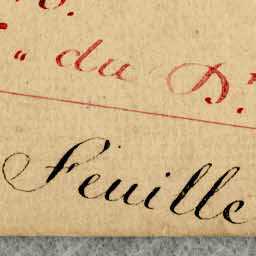 „ du D.r
Feuille